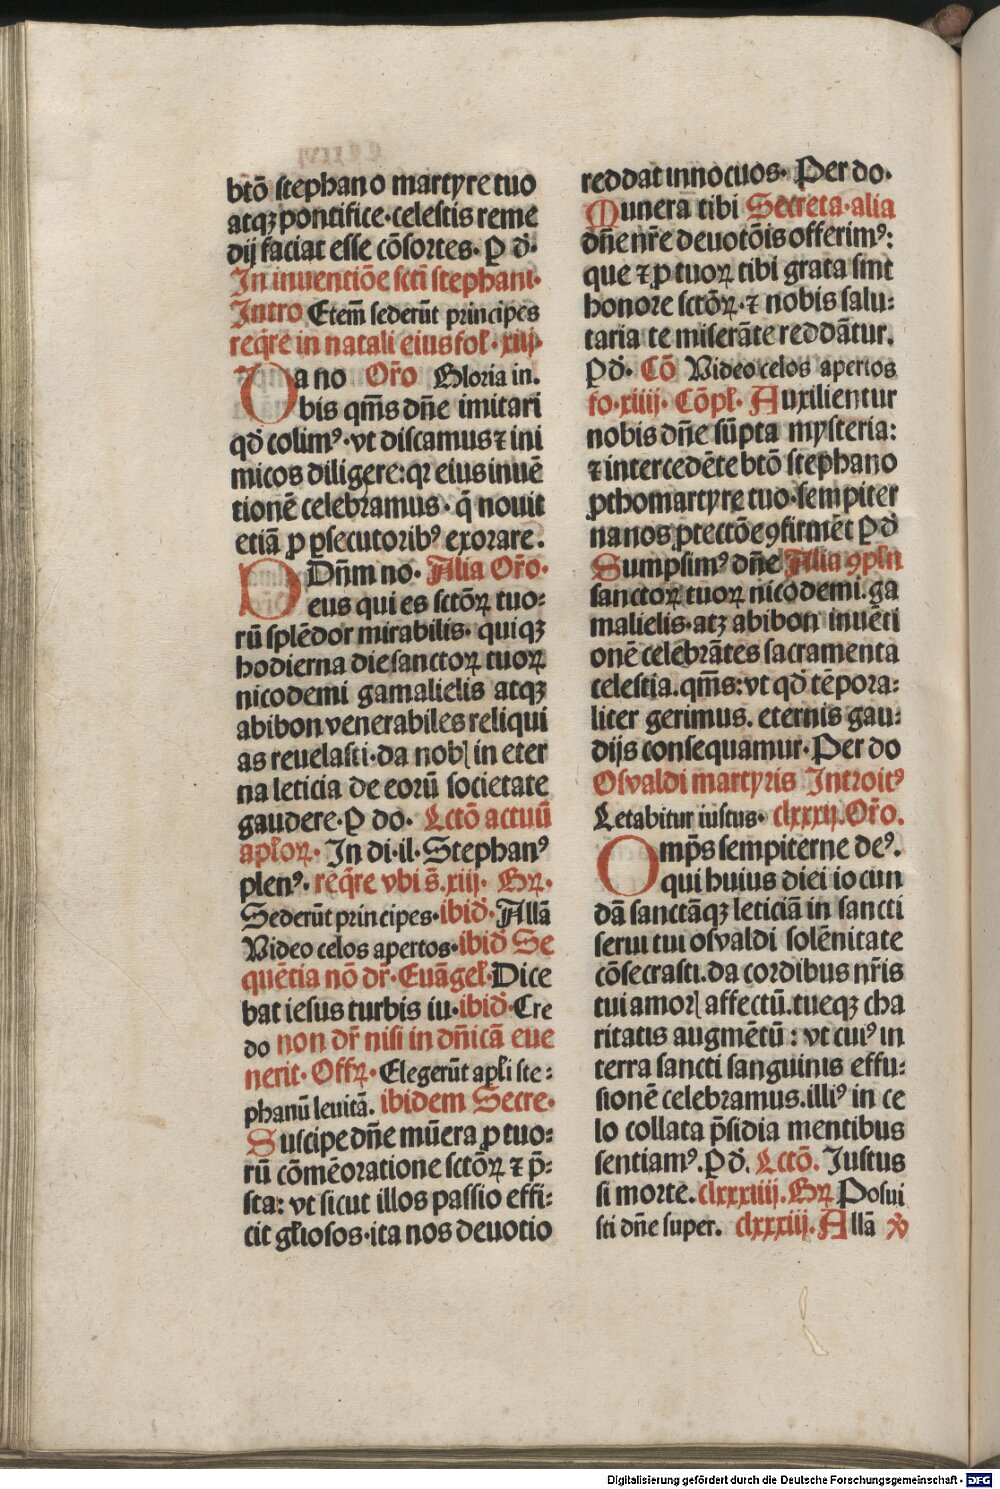 btō stephano martyre tuo
atqꝫ pontifice·celestis reme
dij faciat esse cōsortes. ꝑ d̄·
In inuentiōe sctī stephani·
Intro Etem̄ sederūt principes
reqͬre in natali eius fol̄·xiij·
Da no Or̄o Gloria in.
bis qm̄s dn̄e imitari
qd̄ colimꝰ·vt discamus ⁊ ini
micos diligere:qꝛ eius inuē
tionē celebramus·q̄ nouit
etiā p ꝑsecutoribꝰ exorare.
Dn̄m no· Alia Or̄o·
Deus qui es sctōꝝ tuo:
rū splēdor mirabilis· quiqꝫ
hodierna die sanctoꝝ tuoꝝ
nicodemi gamalielis atqꝫ
abibon venerabiles reliqui
as reuelasti·da nobꝭ in eter
na leticia de eorū societate
gaudere·ꝑ do· Lctō actuū
apl̄oꝝ· In di·il·Stephanꝰ
plenꝰ·reqͬre vbi s̄.xiij· Gꝝ·
Sederūt principes·ibid̄·Allā
Video celos apertos·ibid̄ Se
quētia nō dr̄·Euāgel̄·Dice
bat iesus turbis iu·ibid̄·Cre
do non dr̄ nisi in dn̄icā eue
nerit·Offꝝ·Elegerūt apl̄i ste:
phanū leuitā. ibidem Secre·
Suscipe dn̄e mūera ꝓ tuo:
rū cōmēoratione sctōꝝ ⁊ p̄:
sta: vt sicut illos passio effi:
cit gl̄iosos·ita nos deuotio
reddat innocuos· Per do·
Munera tibi Secreta·alia
dn̄e nr̄e deuotōis offerimꝰ:
que ⁊ ꝓ tuoꝝ tibi grata sint
honore sctōꝝ·⁊ nobis salu:
taria te miserāte reddātur.
ꝑ d̄· Cō Video celos apertos
fo·xiiij· Cōpl̄· Auxilientur
nobis dn̄e sūpta mysteria:
⁊ intercedēte btō stephano
ꝓthomartyre tuo·sempiter
na nos ꝓtectōe ꝯfirmēt ꝑ d̄
Sumpsimꝰ dn̄e Alia ꝯpln̄
sanctoꝝ tuoꝝ nicodemi.ga
malielis·atꝫ abibon inuēti
onē celebrātes sacramenta
celestia.qm̄s:vt qd̄ tēpora:
liter gerimus. eternis gau:
dijs consequamur·Per do
Osvaldi martyris Introitꝰ
Letabitur iustus· clxxxij.Or̄o.
Omp̄s sempiterne deꝰ.
qui huius diei iocun
dā sanctāqꝫ leticiā in sancti
serui tui osvaldi solēnitate
cōsecrasti.da cordibus nr̄is
tui amorꝭ affectū.tueqꝫ cha
ritatis augmētū : vt cuiꝰ in
terra sancti sanguinis effu:
sionē celebramus.illiꝰ in ce
lo collata p̄sidia mentibus
sentiamꝰ.ꝑ d̄. Lctō. Iustus
si morte.clxxxiiij.Gꝝ Posui
sti dn̄e super. clxxxiij.Allā ꝟ
Digitalisierung gefördert durch die Deutsche Forschungsgemeinschaft - DFG